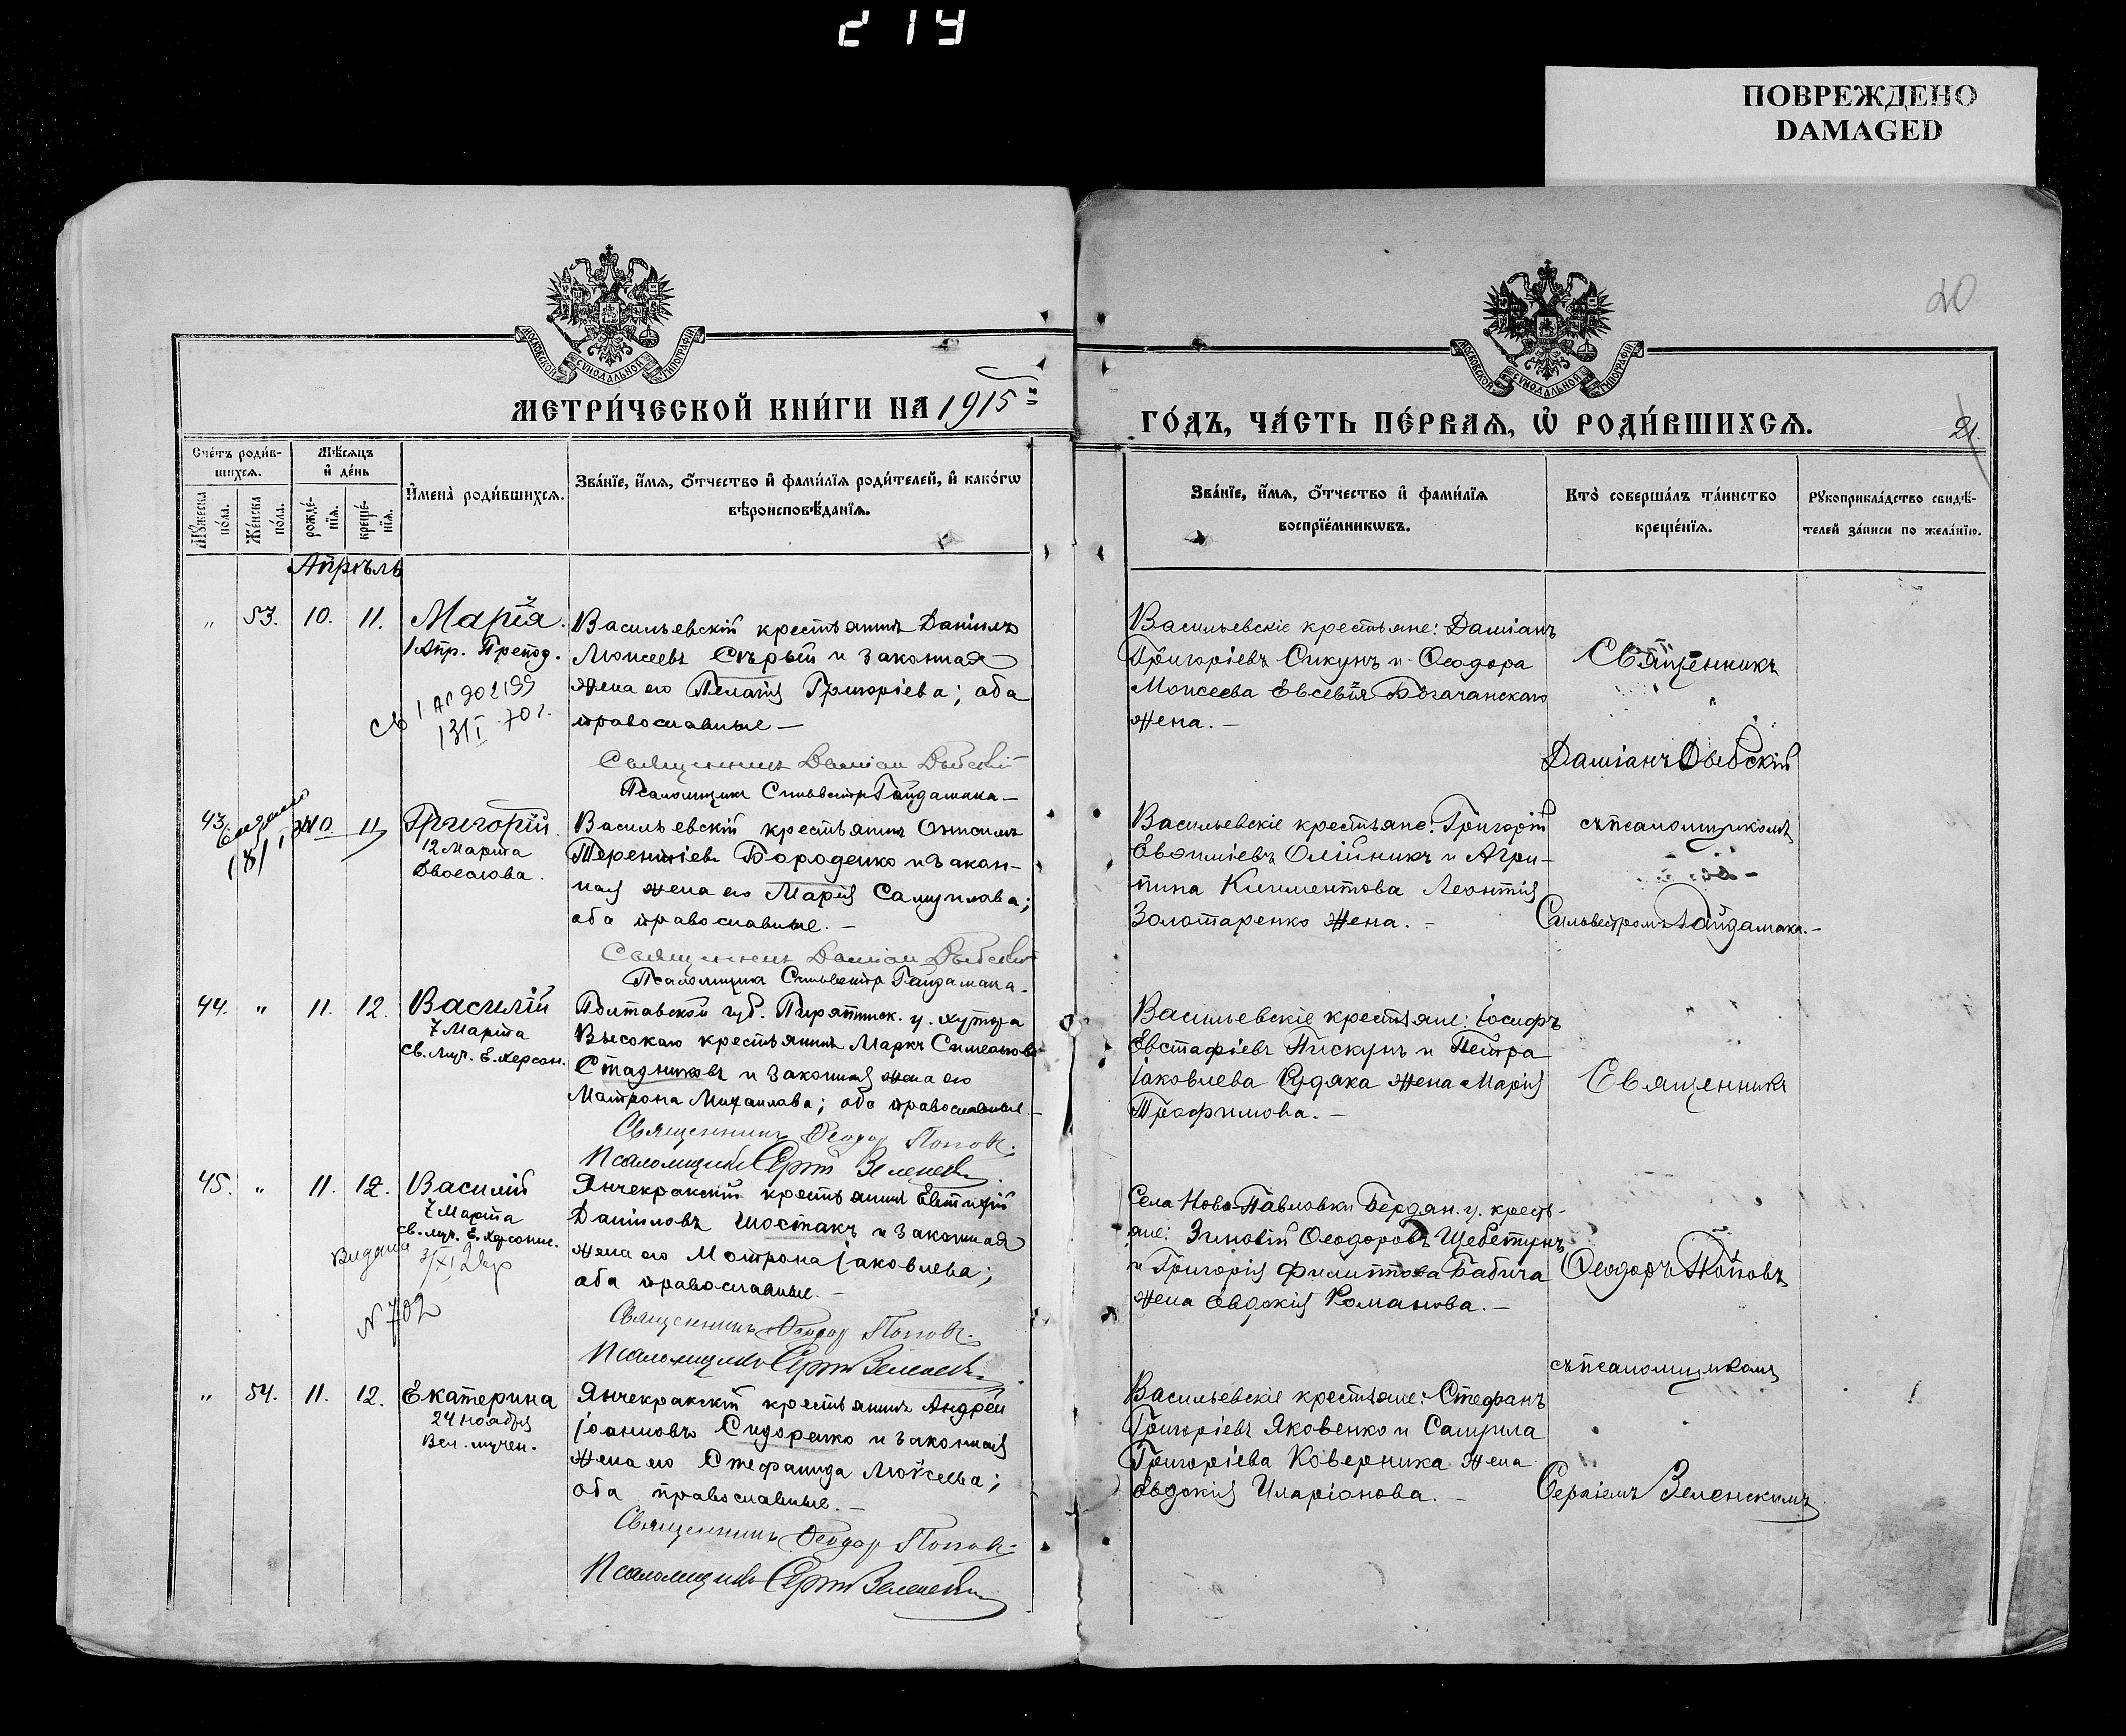 219
ПОВРЕЖДЕНО
DAMAGED
20
МОСКОВСКОЙ СѴНОДАЛЬНОЙ ТИПОГРАФІИ
МОСКОВСКОЙ СѴНОДАЛЬНОЙ ТИПОГРАФІИ
МЕТРИ́ЧЕСКОЙ КНИ́ГИ НА 1915й
ГО́ДЪ, ЧА́СТЬ ПЕ́РВАѦ, Ѡ҆ РОДИ́ВШИХСѦ.
21.
Сче́тъ роди́в-
шихсѧ.
Мꙋжеска по́ла.
Же́нска по́ла.
Мѣ́сѧцъ
и҆ де́нь
рожде́-нїѧ.
креще́-нїѧ.
И҆мена̀ роди́вшихсѧ.
Зва́нїе, и҆́мѧ, ѻ҆́тчество и҆ фами́лїѧ роди́телей, и҆ како́гѡ
вѣроисповѣ́данїѧ.
Зва́нїе, и҆́мѧ, ѻ҆́тчество и҆ фами́лїѧ
воспрїе́мникѡвъ.
Кто̀ соверша́лъ та́инство
креще́нїѧ.
Рꙋкоприкла́дство свидѣ́-
телей за́писи по жела́нїю.
Апрѣль
" 53. 10. 11. Марія.
1 Апр. Препод.
Васильевскій крестьянинъ Даніилъ
Моисеевъ Сѣрый и законная
жена его Пелагія Григоріева; оба
православные —
Священникъ Даміан Дыбскій
Псаломщикъ Сильвестръ Гайдамака —
Васильевскіе крестьяне: Даміанъ
Григоріевъ Сикунъ и Ѳеодора
Моисеева Евсевія Богачанскаго
жена. —
Священникъ
Даміанъ Дыбскій
43. 10 11 Григорій.
12 Марта
Двоеслова.
Васильевскій крестьянинъ
Терентіевъ Бороденко и закон-
ная жена его Марія Самуилова;
оба православные. —
Священникъ Даміан Дыбскій
Псаломщикъ Сильвестръ Гайдамака —
Васильевскіе крестьяне: Григорій
Евѳиміевъ Олійникъ и Агри-
пина Климентова Леонтія
Золотаренко жена. —
съ псаломщикомъ
Сильвестромъ Гайдамака. —
44. " 11. 12. Василій
7 Марта
св. муч. Е. Херсон.
Полтавской губ. Пирятинск. у. хутора
Высокаго крестьянинъ Маркъ Симеоновъ
Стадниковъ и законная жена его
Матрона Михаилова; оба православные. —
Священникъ Ѳеодор Поповъ.
Псаломщикъ Сергій Зеленскій
Васильевскіе крестьяне: Іосифъ
Евстафіевъ Пискунъ и Петра
Іаковлева Рудяка жена Марія
Трофимова. —
Священникъ
45. " 11. 12. Василій
7 Марта
св. муч. Е. Херсонис.
Выдана 3/XI
№ 702
Янчекракскій крестьянинъ Евтихій
Даниловъ Шостакъ и законная
жена его Мотрона Іаковлева;
оба православные. —
Священникъ Ѳеодор Поповъ.
Псаломщикъ Сергій Зеленскій
Села Ново-Павловки Бердян. у. кресть-
яне: Зиновій Ѳеодоровъ Щебетунъ
и Григорія Филиппова Бабича
жена Евдокія Романова. —
Ѳеодоръ Поповъ
съ псаломщикомъ
" 54. 11. 12. Екатерина
24 ноября
Вел. мучен.
Янчекракскій крестьянинъ Андрей
Іоанновъ Сидоренко и законная
жена его Стефанида Моѵсеева;
оба православные. —
Священникъ Ѳеодор Поповъ.
Псаломщикъ Сергій Зеленскій
Васильевскіе крестьяне: Стефанъ
Григоріевъ Яковенко и Самуила
Григоріева Коверника жена
Евдокія Иларіонова. —
Сергіемъ Зеленскимъ